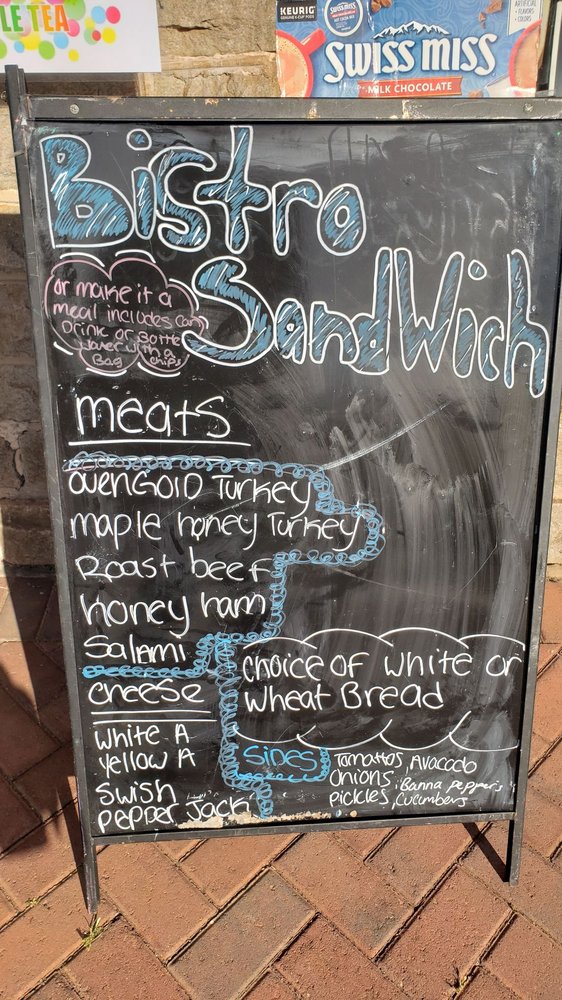 LE TEA
KEURIG
GENUINE K-CUP PODS
SWISS MISS
ARTIFICIAL
FLAVORS
COLORS
SWISS MISS
MILK CHOCOLATE
Bistro
SandWich
or make it a
meal includes can
Drink or Bottle
water with a
Bag chips
meats
ovenGold Turkey
maple honey Turkey
Roast beef
Honey ham
Salami
cheese
White A
yellow A
Swish
pepper Jack
choice of white or
Wheat Bread
Sides
Tomattos, Avocodo
onions, Banna pepper's
pickles, cucumbers